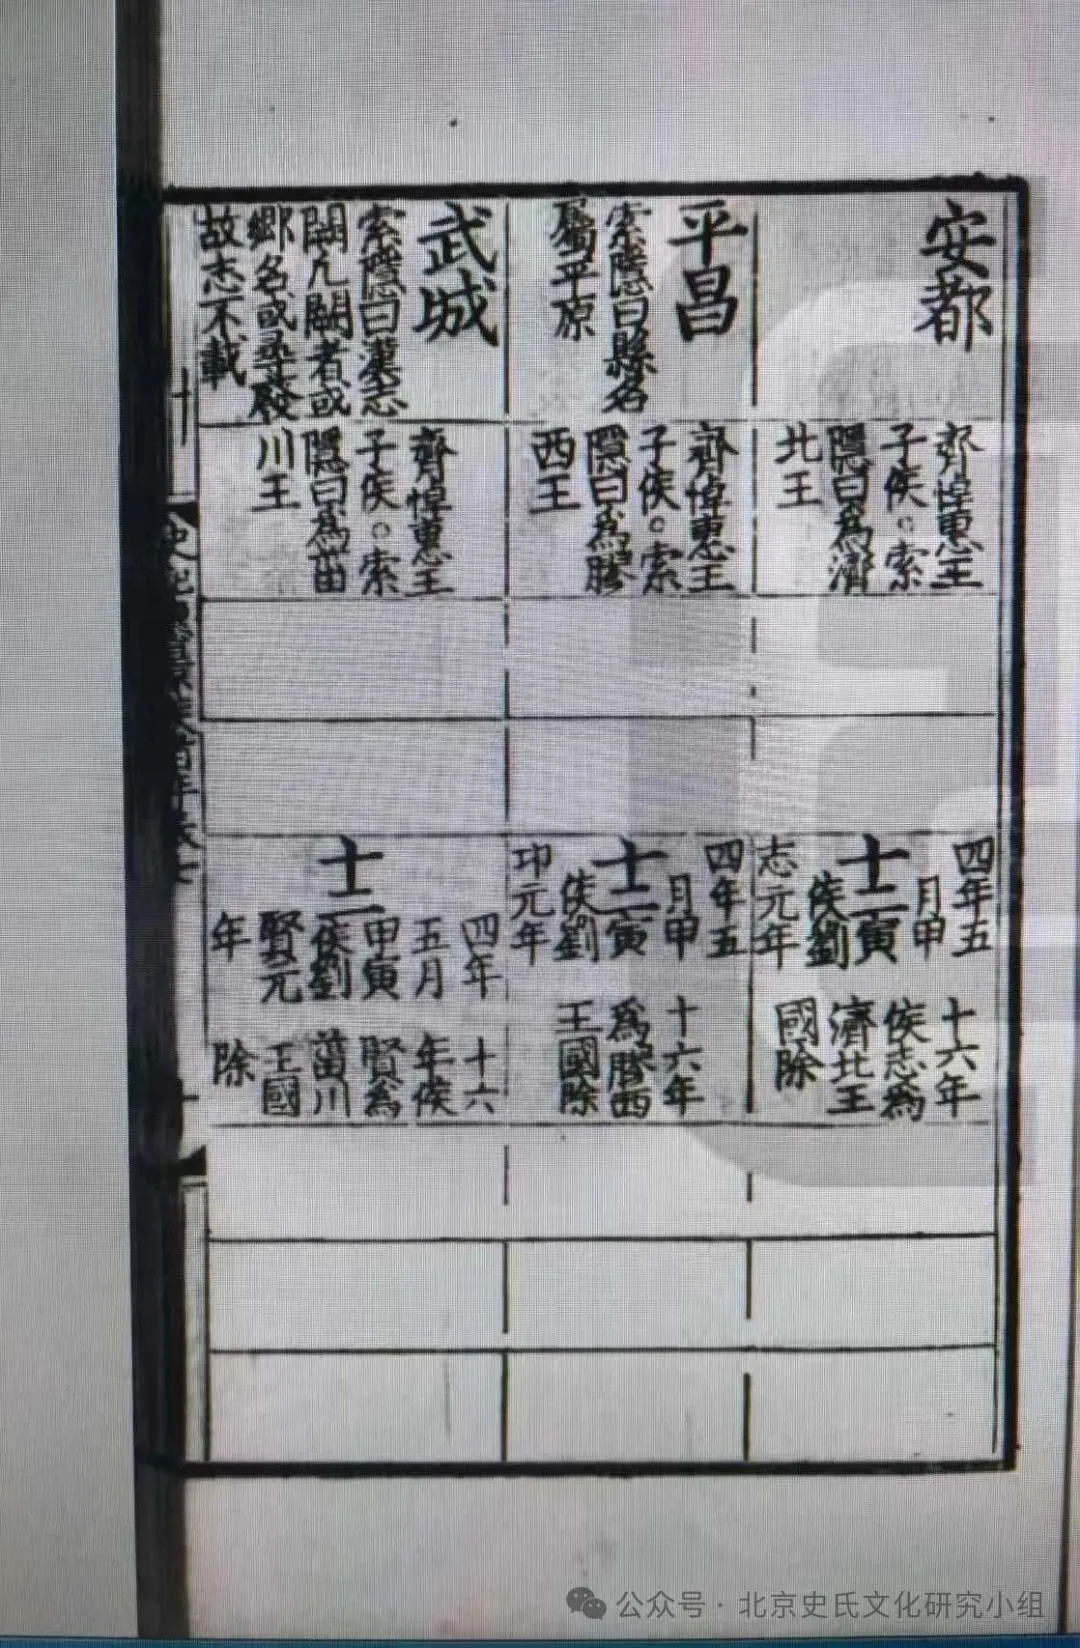 安都
齊悼惠王
子侯。索
隱曰爲濟
北王
四年五
月甲
寅
侯劉
志元年
十二
十六年
侯志爲
濟北王
國除
平昌
索隱曰縣名
屬平原
齊悼惠王
子侯。索
隱曰爲膠
西王
四年五
月甲
寅
侯劉
卬元年
十二
十六年
爲膠西
王國除
武城
索隱曰漢志
闕凡闕者或
鄉名或尋廢
故志不載
齊悼惠王
子侯。索
隱曰爲菑
川王
十二
四年
五月
甲寅
侯劉
賢元
年
十六
年侯
賢爲
菑川
王國
除
公众号 · 北京史氏文化研究小组